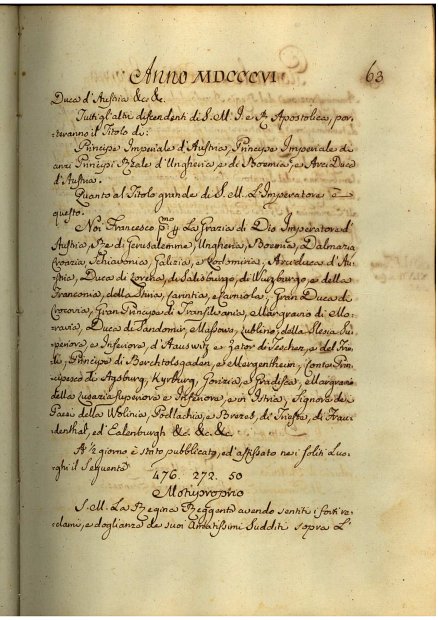 Anno MDCCCVI
63
Duca d'Austria &c. &c.
Tutti gl'altri discendenti di S. M. I. e R. Apostolica, por-
teranno il Titolo di:
Principe Imperiale d'Austria, Principe Imperiale di
anzi Principi Reale d'Ungheria, e di Boemia, e Arci Duca
d'Austria.
Quanto al Titolo grande di S. M. L'Imperatore è
questo.
Noi Francesco p.mo p. La Grazia di Dio Imperatore d'
Austria, Rè di Gerusalemme, Ungheria, Boemia, Dalmazia
Croazia Schiavonia, Galizia, e Lodomiria, Arciduca d'Au-
stria, Duca di Lorena, di Salisburgo, di Wurzburgo, e della
Franconia, della Stiria, Carintia, e Carniola, Gran Duca di
Crocovia, Gran Principe di Transilvania, Margravio di Mo-
ravia, Duca di Sandomir, Massovia, Lublino, della Slesia Su-
periore, e Inferiore, d'Auswiz e Zator di Teschen, e del Friu-
li, Principe di Berchtolsgaden, e Mergentheim, Conte Prin-
cipesco di Kyburg, Gorizia, e Gradisca, Margravio
della Lusazia Superiore e Inferiore, e in Istria, Signore de'
Paesi della Wolinia, Podlachia, e Brezes, di Trieste, di Frau-
denthal, ed Ealenburgh &c. &c. &c.
A ½ giorno è stato pubblicato, ed affissato nei soliti Luo-
ghi il Seguente
476. 272. 50
Motuproprio
S. M. La Regina Reggente avendo sentiti i forti re-
clami, e doglianze de suoi Amatissimi Sudditi sopra L'